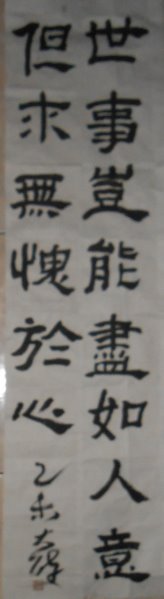 世事豈能盡如人意
但求無愧於心
乙未